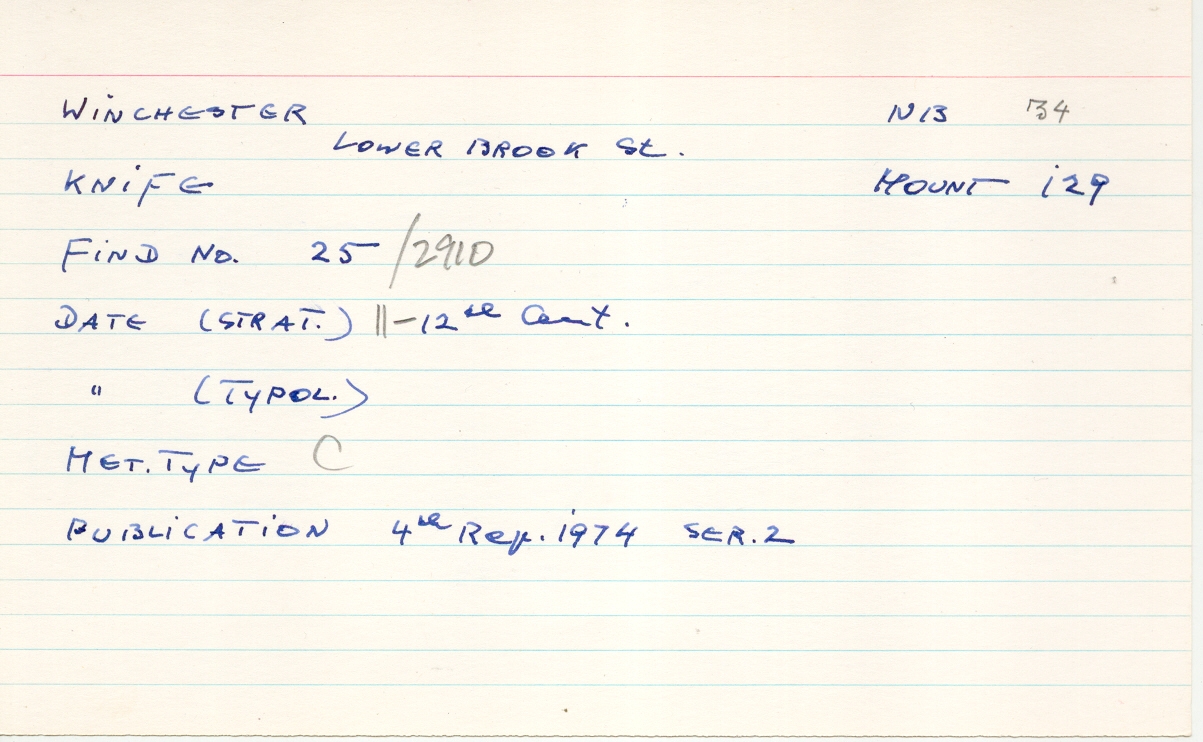 WINCHESTER NB 34
LOWER BROOK St.
KNIFE MOUNT 129
FIND No. 25/2910
DATE (STRAT.) 11-12th Cent.
" (TYPOL.)
MET. TYPE C
PUBLICATION 4th Rep. 1974 SER. 2